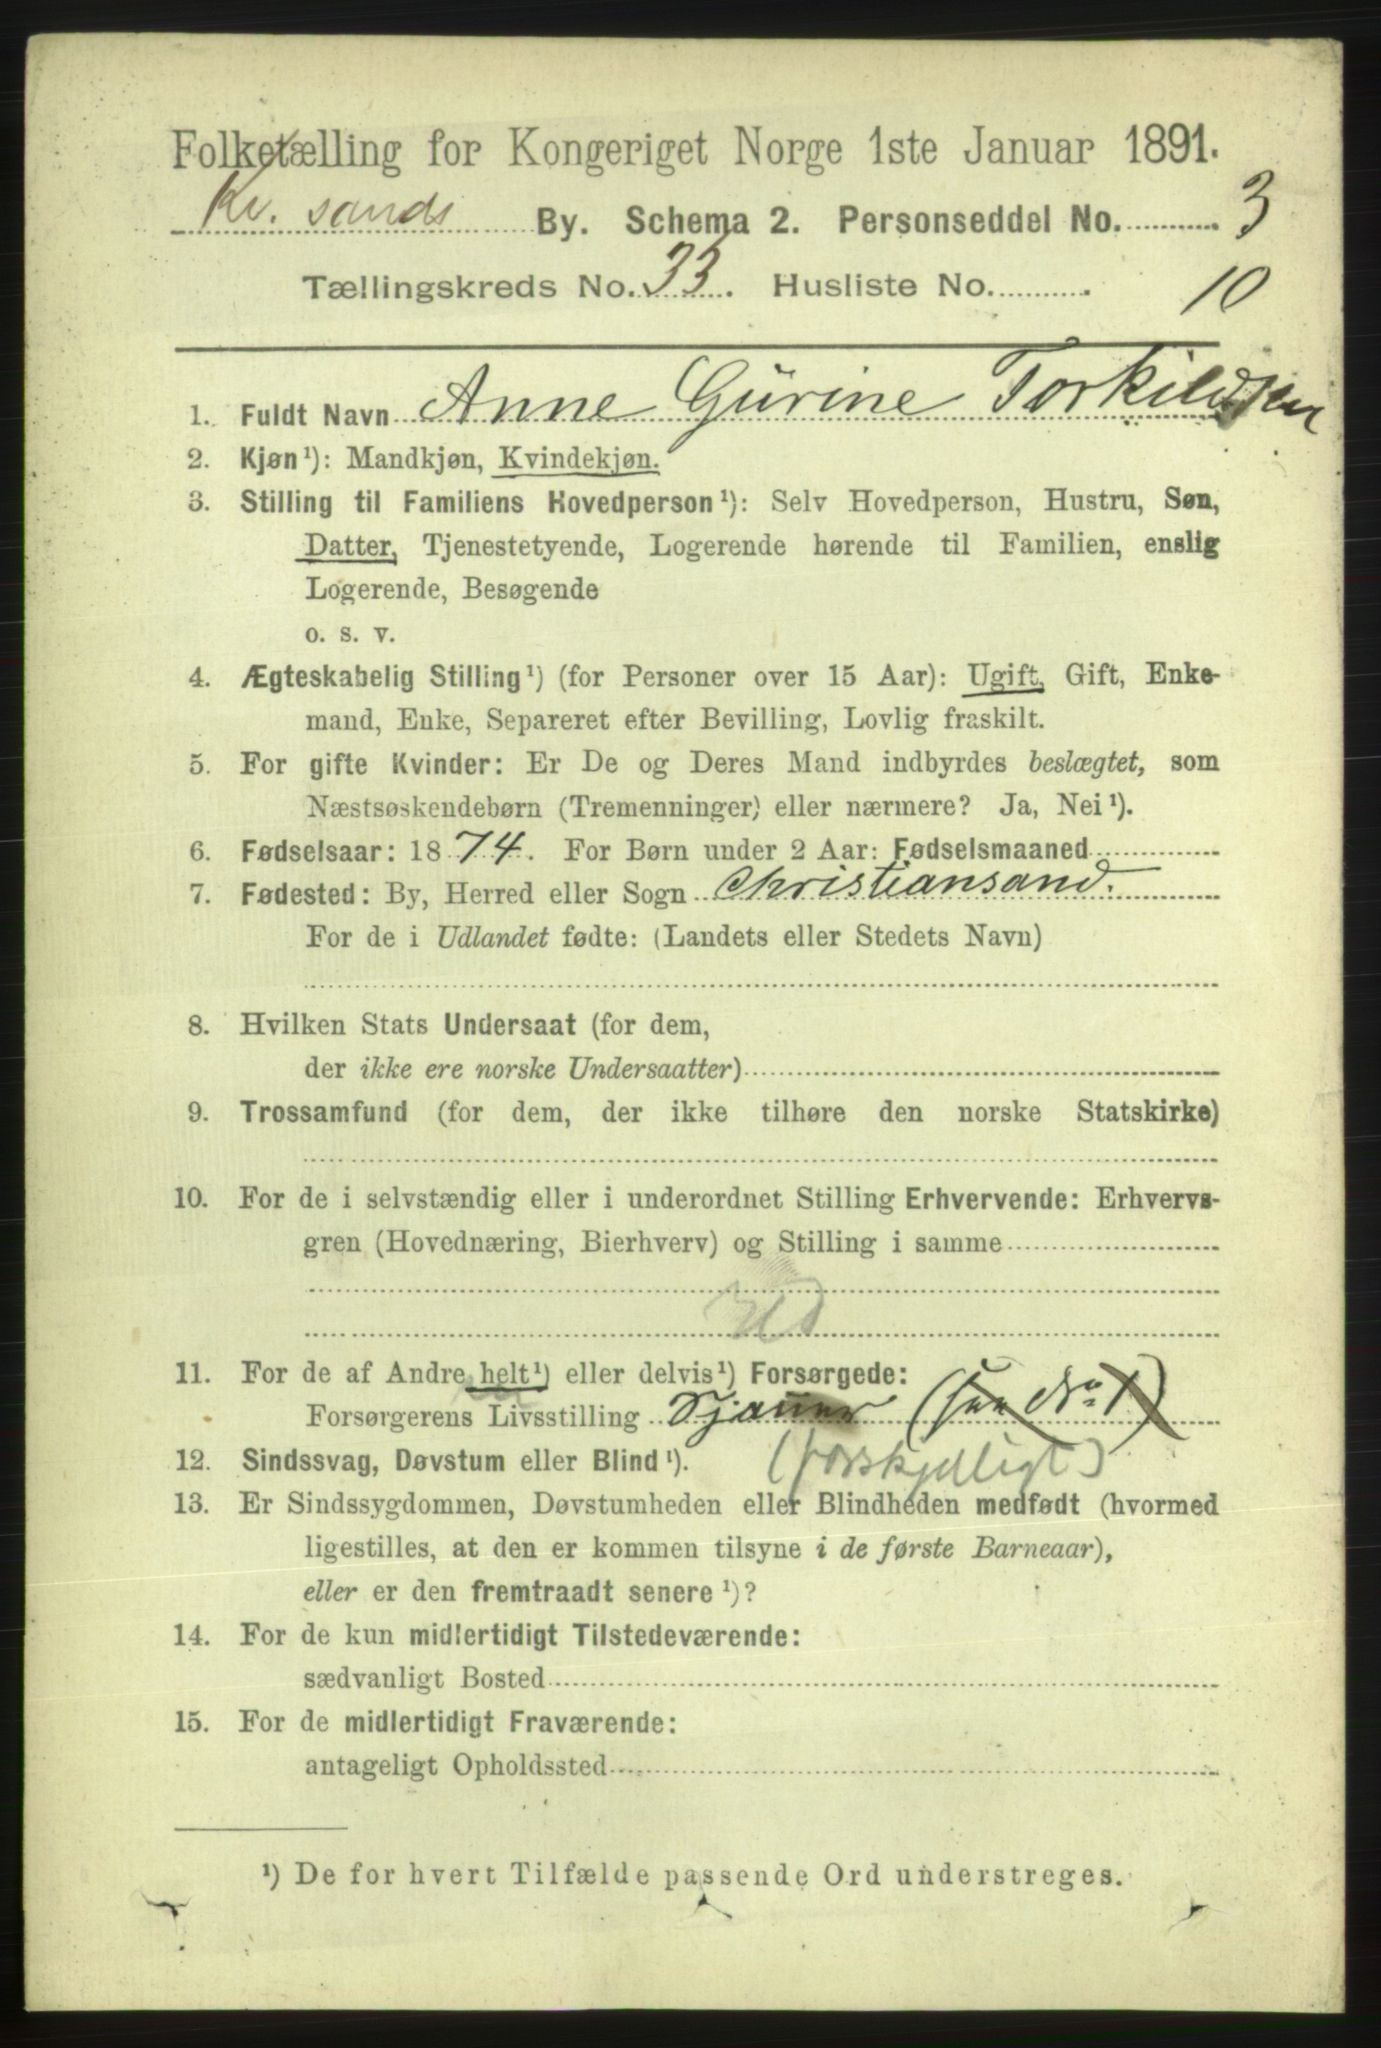 Folketælling for Kongeriget Norge 1ste Januar 1891.
Kr. sands By. Schema 2. Personseddel No. 3
Tællingskreds No. 33. Husliste No. 10
1. Fuldt Navn Anne Gürine Torkildsen
2. Kjøn¹): Mandkjøn, Kvindekjøn.
3. Stilling til Familiens Hovedperson¹): Selv Hovedperson, Hustru, Søn,
Datter, Tjenestetyende, Logerende hørende til Familien, enslig
Logerende, Besøgende
o. s. v.
4. Ægteskabelig Stilling¹) (for Personer over 15 Aar): Ugift, Gift, Enke-
mand, Enke, Separeret efter Bevilling, Lovlig fraskilt.
5. For gifte Kvinder: Er De og Deres Mand indbyrdes beslægtet, som
Næstsøskendebørn (Tremenninger) eller nærmere? Ja, Nei¹).
6. Fødselsaar: 1874. For Børn under 2 Aar: Fødselsmaaned
7. Fødested: By, Herred eller Sogn Christiansand.
For de i Udlandet fødte: (Landets eller Stedets Navn)
8. Hvilken Stats Undersaat (for dem,
der ikke ere norske Undersaatter)
9. Trossamfund (for dem, der ikke tilhøre den norske Statskirke)
10. For de i selvstændig eller i underordnet Stilling Erhvervende: Erhvervs-
gren (Hovednæring, Bierhverv) og Stilling i samme
11. For de af Andre helt¹) eller delvis¹) Forsørgede:
Forsørgerens Livsstilling Sjauer (see No 1)
(forskjelligt)
12. Sindssvag, Døvstum eller Blind¹).
13. Er Sindssygdommen, Døvstumheden eller Blindheden medfødt (hvormed
ligestilles, at den er kommen tilsyne i de første Barneaar),
eller er den fremtraadt senere¹)?
14. For de kun midlertidigt Tilstedeværende:
sædvanligt Bosted
15. For de midlertidigt Fraværende:
antageligt Opholdssted
¹) De for hvert Tilfælde passende Ord understreges.